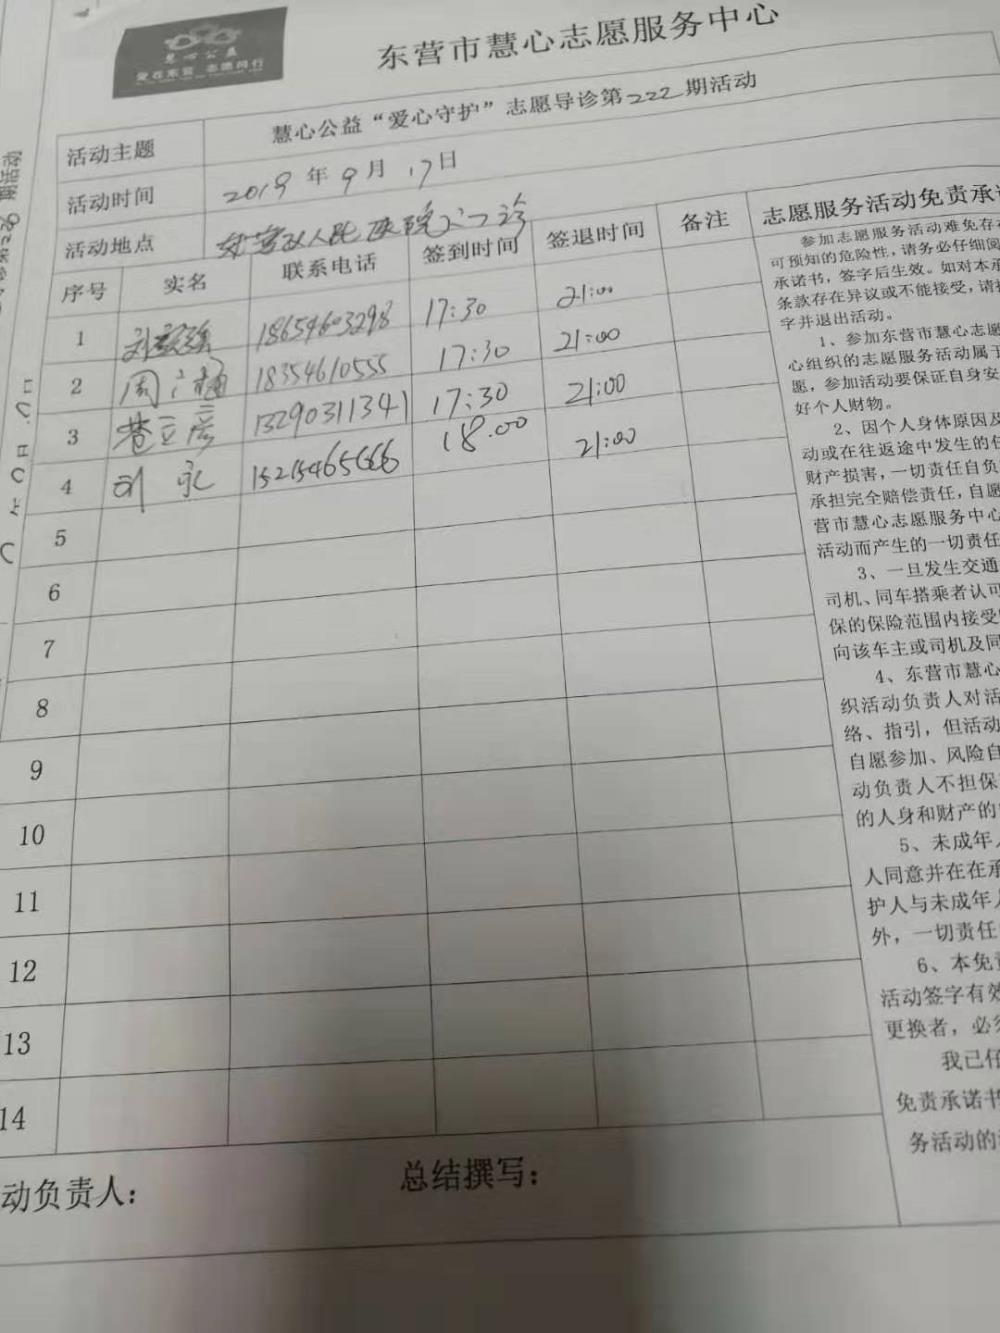 慧心公益
爱在东营 志愿同行
东营市慧心志愿服务中心
活动主题 慧心公益“爱心守护”志愿导诊第222期活动
活动时间 2019年9月17日
活动地点 东营区人民医院门诊
序号 实名 联系电话 签到时间 签退时间 备注
1 18654603298 17:30 21:00
2 18354610555 17:30 21:00
3 13290311341 17:30 21:00
4 刘永 15215465666 18:00 21:00
5
6
7
8
9
10
11
12
13
14
动负责人: 总结撰写:
志愿服务活动免责承诺
参加志愿服务活动难免存
可预知的危险性,请务必仔细阅
承诺书,签字后生效。如对本承
条款存在异议或不能接受,请
字并退出活动。
1、参加东营市慧心志愿
心组织的志愿服务活动属于
愿,参加活动要保证自身安
好个人财物。
2、因个人身体原因及
动或在往返途中发生的任
财产损害,一切责任自负
承担完全赔偿责任,自愿
营市慧心志愿服务中心
活动而产生的一切责任
3、一旦发生交通
司机、同车搭乘者认可
保的保险范围内接受
向该车主或司机及同
4、东营市慧心
织活动负责人对活
络、指引,但活动
自愿参加、风险自
动负责人不担保
的人身和财产的
5、未成年人
人同意并在在承
护人与未成年人
外,一切责任
6、本免责
活动签字有效
更换者,必须
我已仔
免责承诺书
务活动的